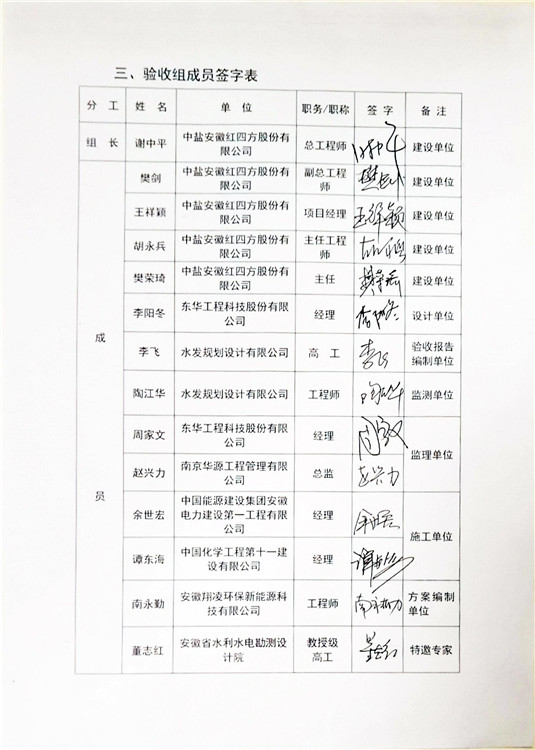 三、验收组成员签字表
分 工 姓 名 单 位 职务/职称 签 字 备 注
组 长 谢中平 中盐安徽红四方股份有 总工程师 建设单位
限公司
樊剑 中盐安徽红四方股份有 副总工程 建设单位
限公司 师
王祥颖 中盐安徽红四方股份有 项目经理 王祥颖 建设单位
限公司
胡永兵 中盐安徽红四方股份有 主任工程 建设单位
限公司 师
樊荣琦 中盐安徽红四方股份有 主任 建设单位
限公司
李阳冬 东华工程科技股份有限 经理 李阳冬 设计单位
公司
成
李飞 水发规划设计有限公司 高 工 李飞 验收报告
编制单位
陶江华 水发规划设计有限公司 工程师 监测单位
周家文 东华工程科技股份有限 经理 监理单位
公司
赵兴力 南京华源工程管理有限 总监 赵兴力
公司
员
余世宏 中国能源建设集团安徽 经理 施工单位
电力建设第一工程有限
公司
谭东海 中国化学工程第十一建 经理
设有限公司
南永勤 安徽翔凌环保新能源科 工程师 方案编制
技有限公司 单位
董志红 安徽省水利水电勘测设 教授级 特邀专家
计院 高工